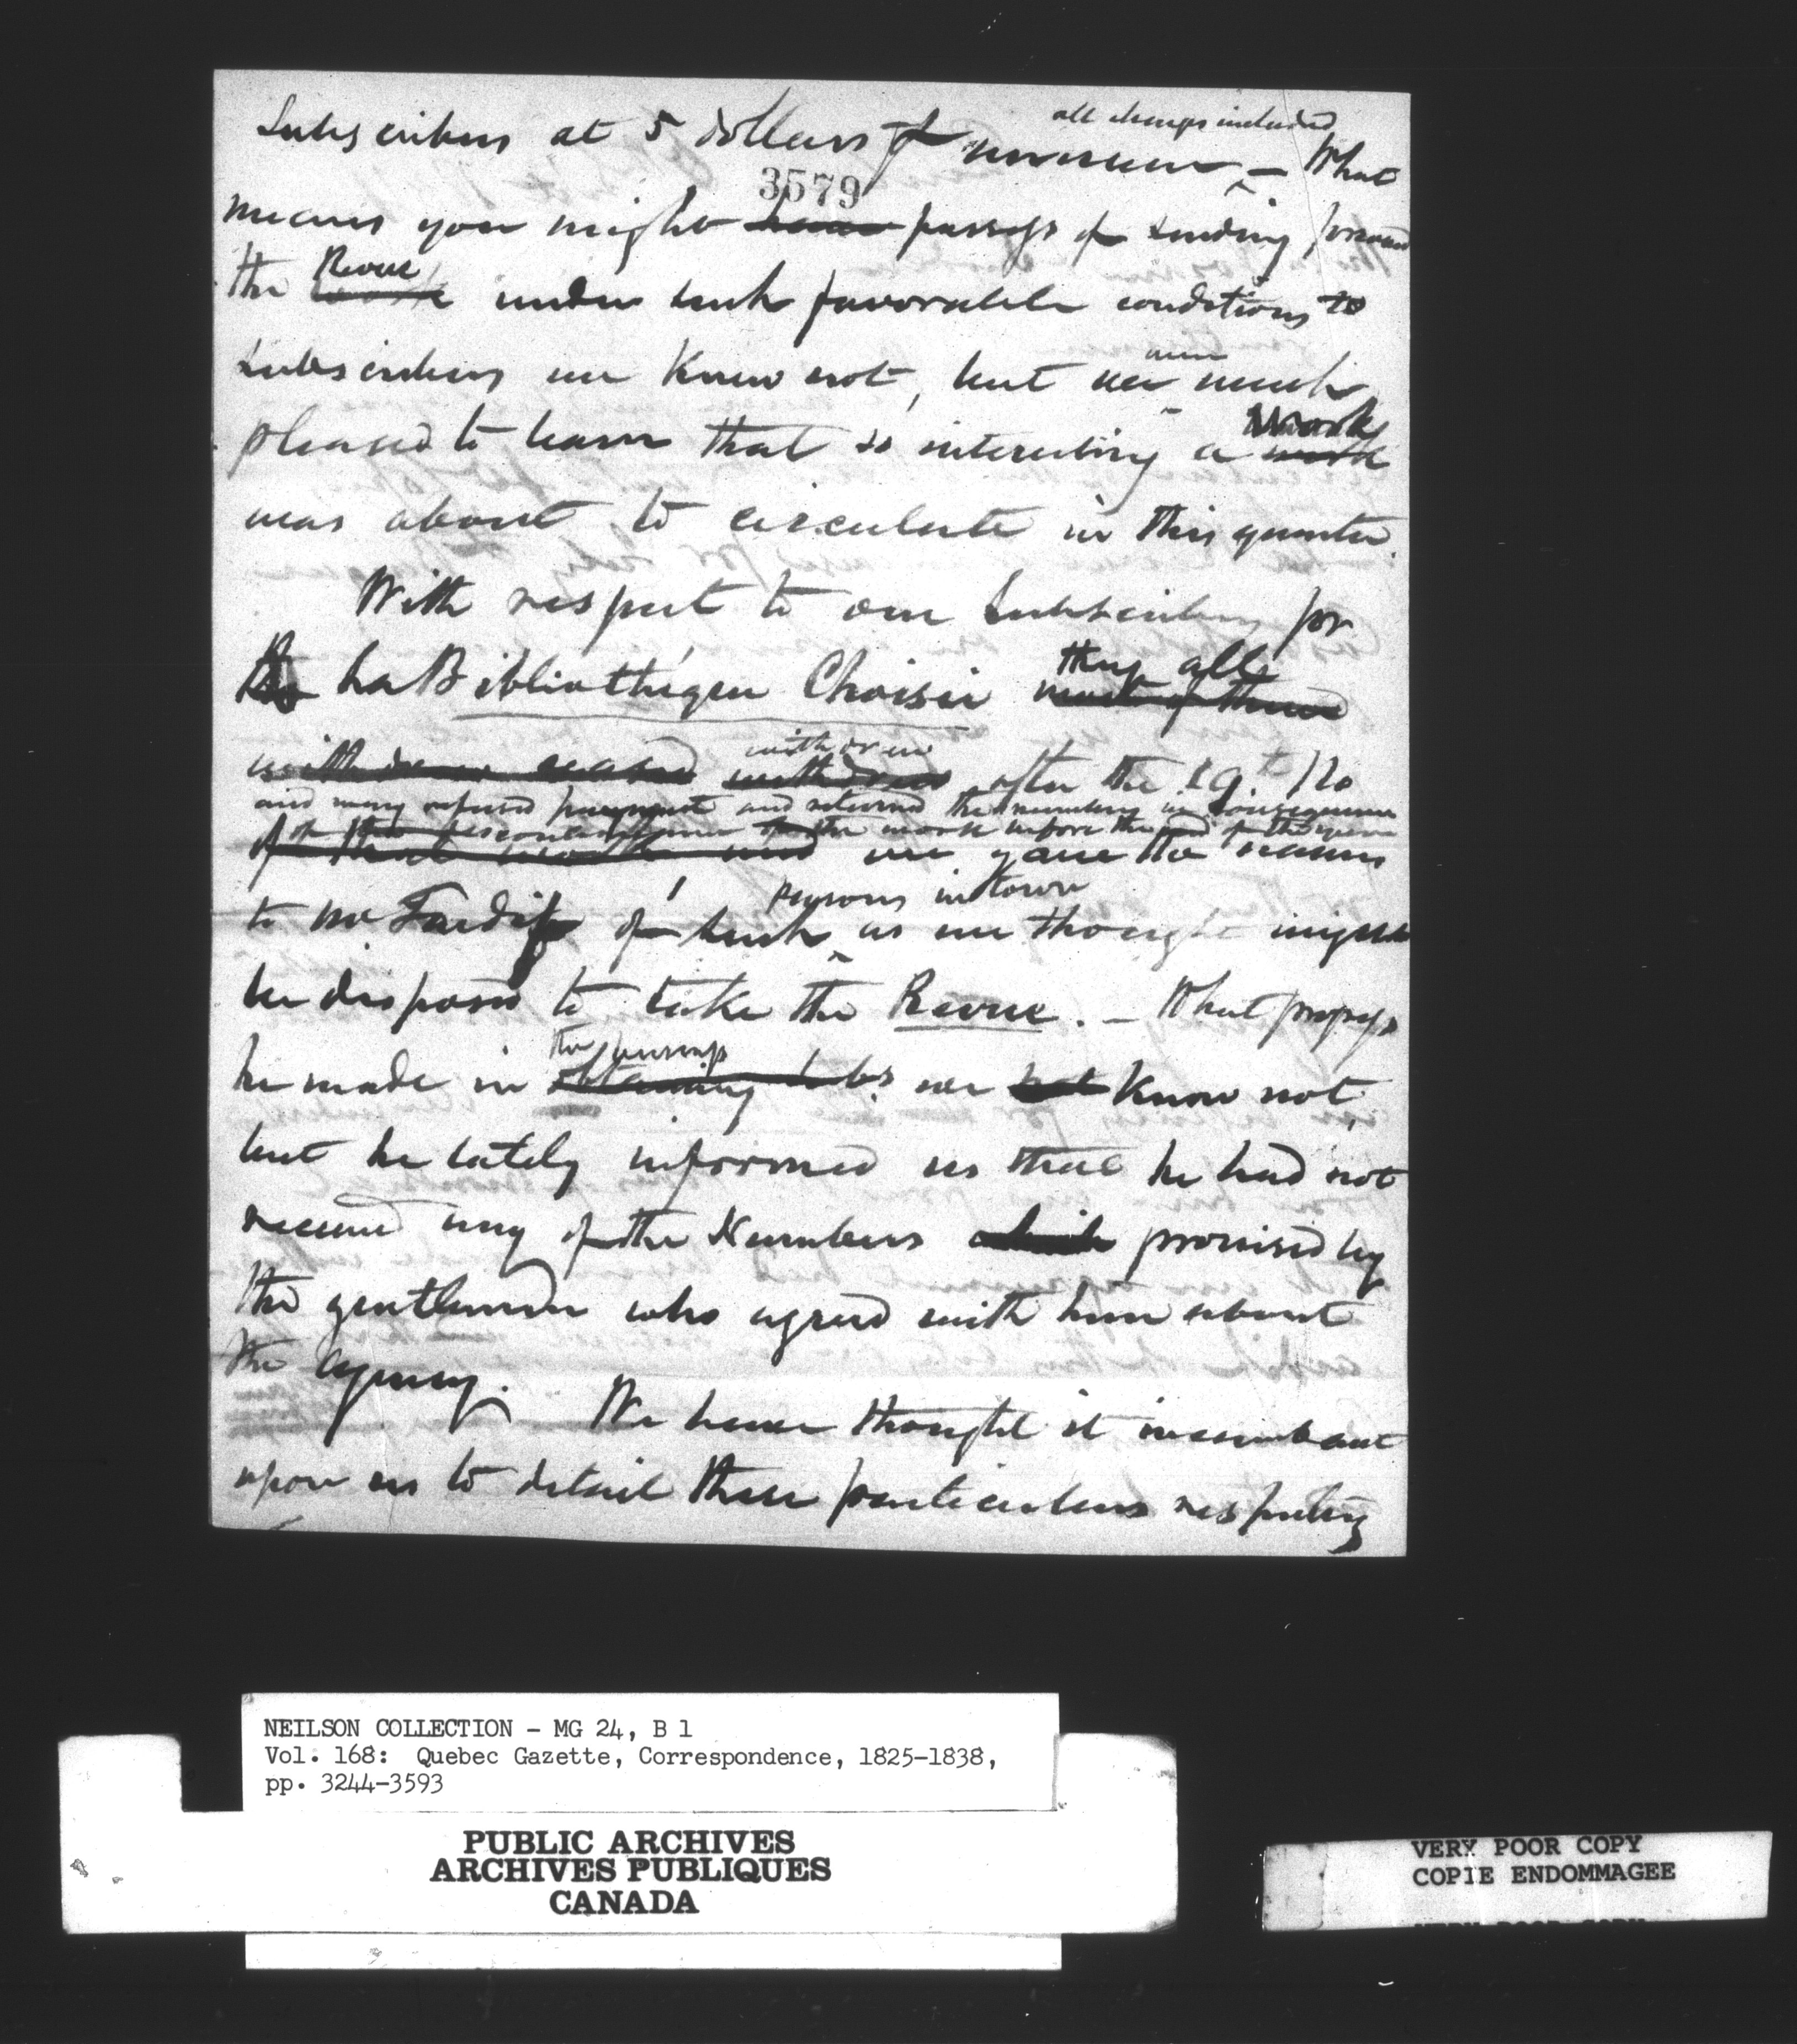 all charges included
Subscribers at 5 dollars p annum, – What
3579
means you might have possess of sending forward
the work Revue under such favorable conditions to
subscribers we knew not, but we were much
pleased to learn that so interesting a work Work
was about to circulate in this quarter.
With respect to our Subscribers for
La Bibliothéque Choisie most of them they all
withdrew withdrew after the 19th No
and many refused payment and returned the numbers in consequence
of the discontinuance of the work before the end of the year
of that work and we gave the names
to Mr Tardif of such persons in town as we thought might
be disposed to take the Revue. – What progress
he made in obtaining subs. the we but know not,
but he lately informed us that he had not
received any of the Numbers which promised by
the gentleman who agreed with him about
the Agency. We have thought it incumbent
upon us to detail these particulars respecting
NEILSON COLLECTION - MG 24, B 1
Vol. 168: Quebec Gazette, Correspondence, 1825-1838,
pp. 3244-3593
PUBLIC ARCHIVES
ARCHIVES PUBLIQUES
CANADA
VERY POOR COPY
COPIE ENDOMMAGEE
VERY POOR COPY